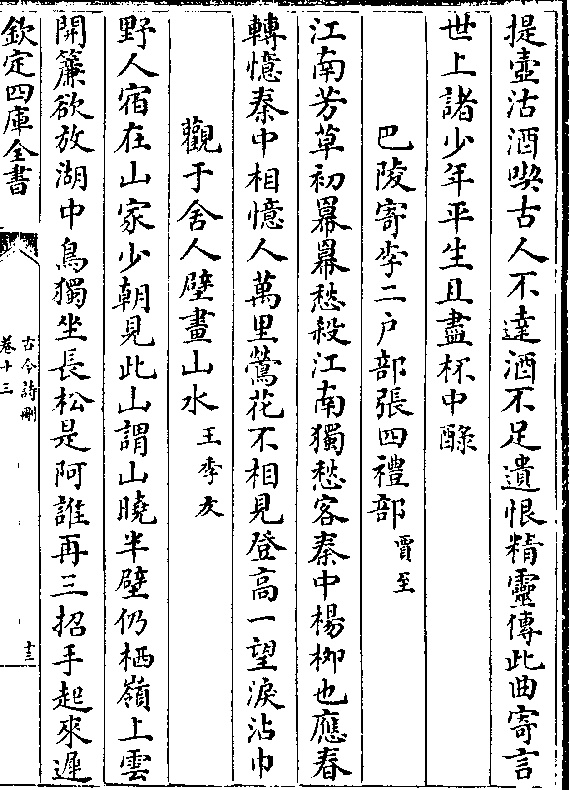 提壺沽酒喫古人不達酒不足遺恨精靈傳此曲寄言
世上諸少年平生且盡杯中醁
巴陵寄李二户部張四禮部賈至
江南芳草初羃羃愁殺江南獨愁客秦中楊栁也應春
轉憶秦中相憶人萬里鶯花不相見登高一望淚沾巾
觀于舍人壁畫山水王季友
野人宿在山家少朝見此山謂山曉半壁仍栖嶺上雲
開簾欲放湖中鳥獨坐長松是阿誰再三招手起來遲
欽定四庫全書
古今詩刪
卷十三
十三